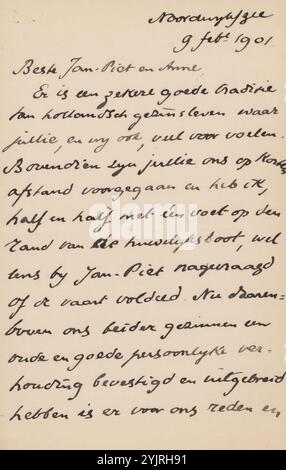 Noordwijk/Zee
9 febr. 1901
Beste Jan-Piet en Anne,
Er is een zekere goede traditie
van hollandsch gezinsleven waar
jullie, en wij ook, veel voor voelen.
Bovendien zijn jullie ons op korten
afstand voorgegaan en heb ik,
half en half met één voet op den
rand van de huwelijksboot, wel
eens bij Jan-Piet nagevraagd
of de vaart voldeed. Nu daaren-
boven ons beider gezinnen een
oude en goede persoonlijke ver-
houding bevestigd en uitgebreid
hebben is er voor ons reden en
alamy
www.alamy.com
2YJRH91